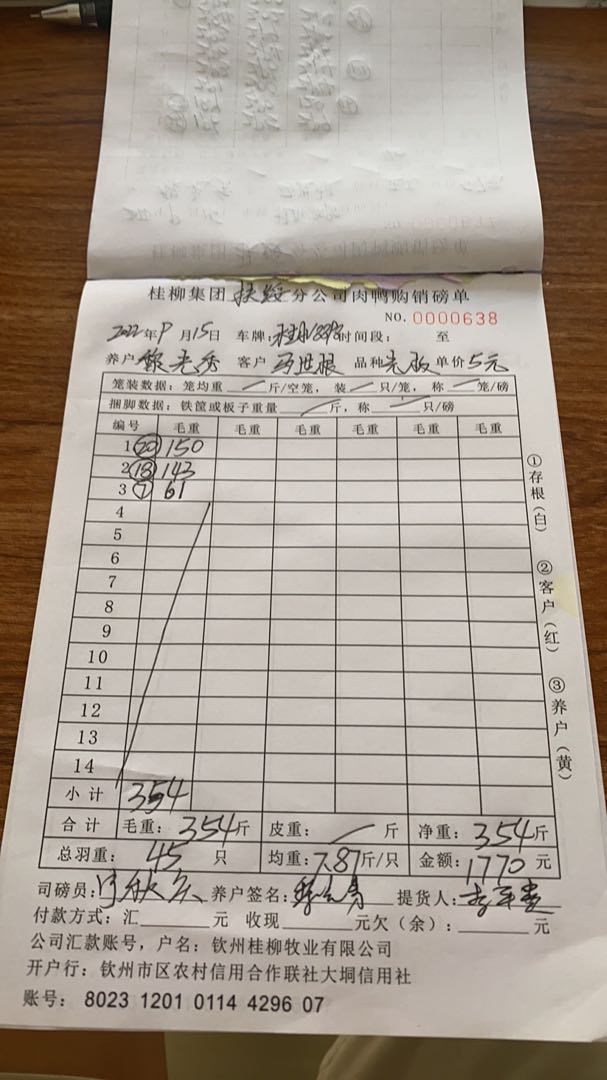 桂柳集团扶绥分公司肉鸭购销磅单
NO. 0000638
2022年9月15日 车牌: 时间段: 至
养户 客户 马世根 品种 单价5元
笼装数据:笼均重 / 斤/空笼,装 / 只/笼,称 / 笼/磅
捆脚数据:铁筐或板子重量 / 斤,称 / 只/磅
编号 毛重 毛重 毛重 毛重 毛重 毛重
1 20 150
2 18 143
3 7 61
4
5
6
7
8
9
10
11
12
13
14
小计 354
合计 毛重:354斤 皮重: / 斤 净重:354斤
总羽重:45 只 均重:7.87斤/只 金额:1770 元
司磅员: 养户签名: 提货人:
付款方式:汇 元 收现 元欠(余): 元
公司汇款账号,户名:钦州桂柳牧业有限公司
开户行:钦州市区农村信用合作联社大垌信用社
账号: 8023 1201 0114 4296 07
①存根(白)
②客户(红)
③养户(黄)